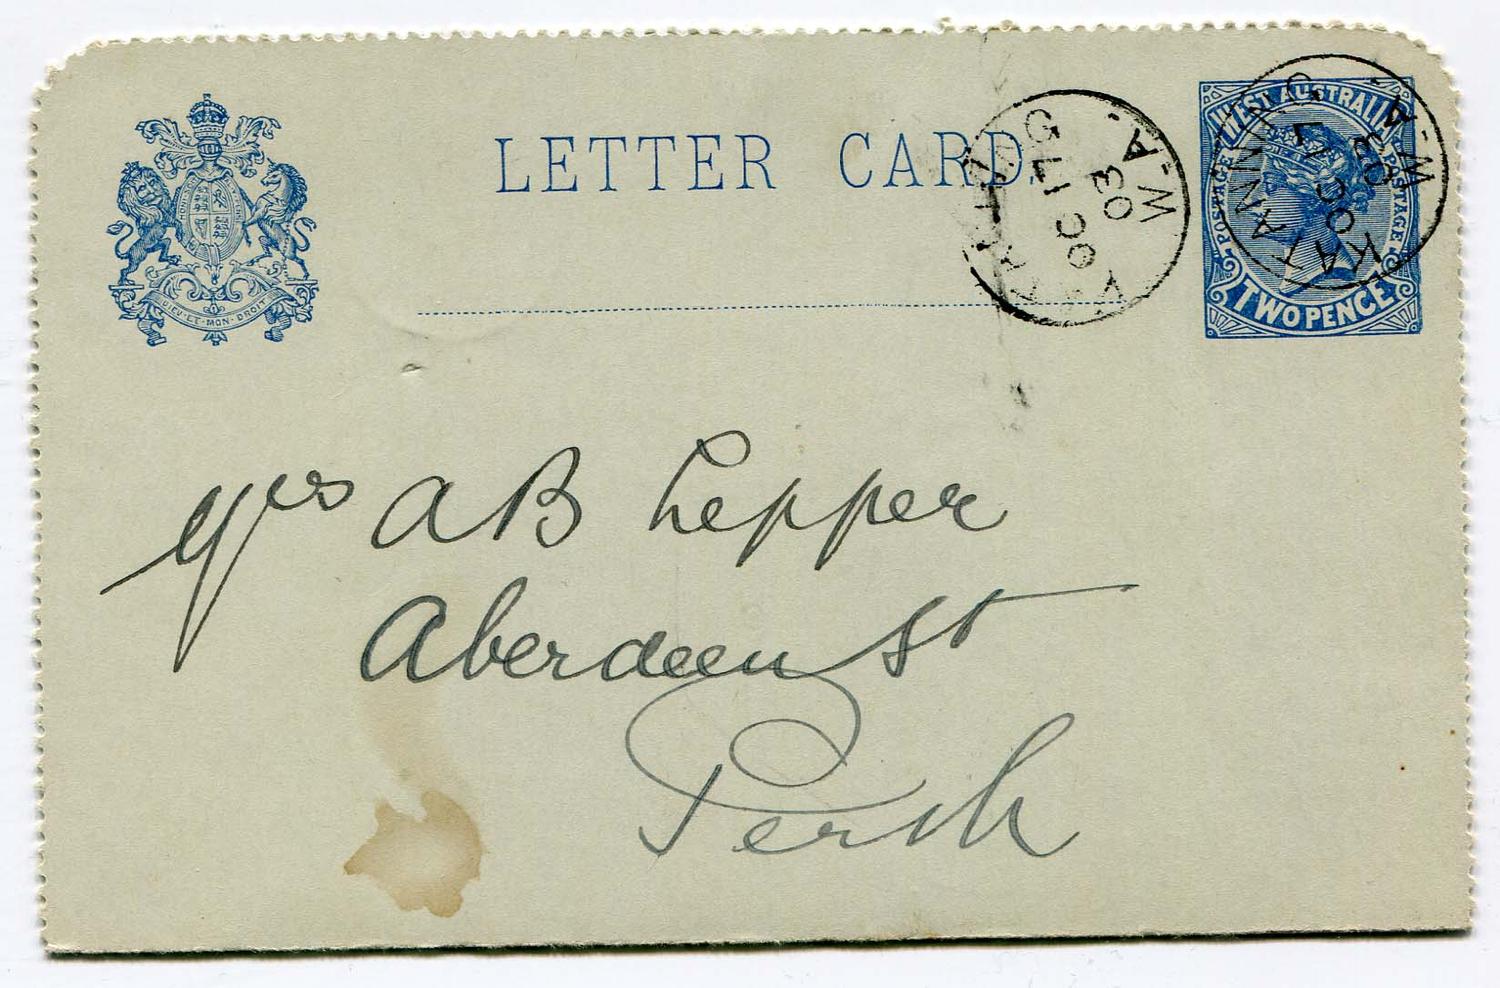 LETTER CARD.
WEST AUSTRALIA
POSTAGE
POSTAGE
TWO PENCE
KATANNING
OC 17
03
W-A.
KATANNING
OC 17
03
W-A.
DIEU·ET·MON·DROIT
Mrs A B Lepper
Aberdeen St
Perth